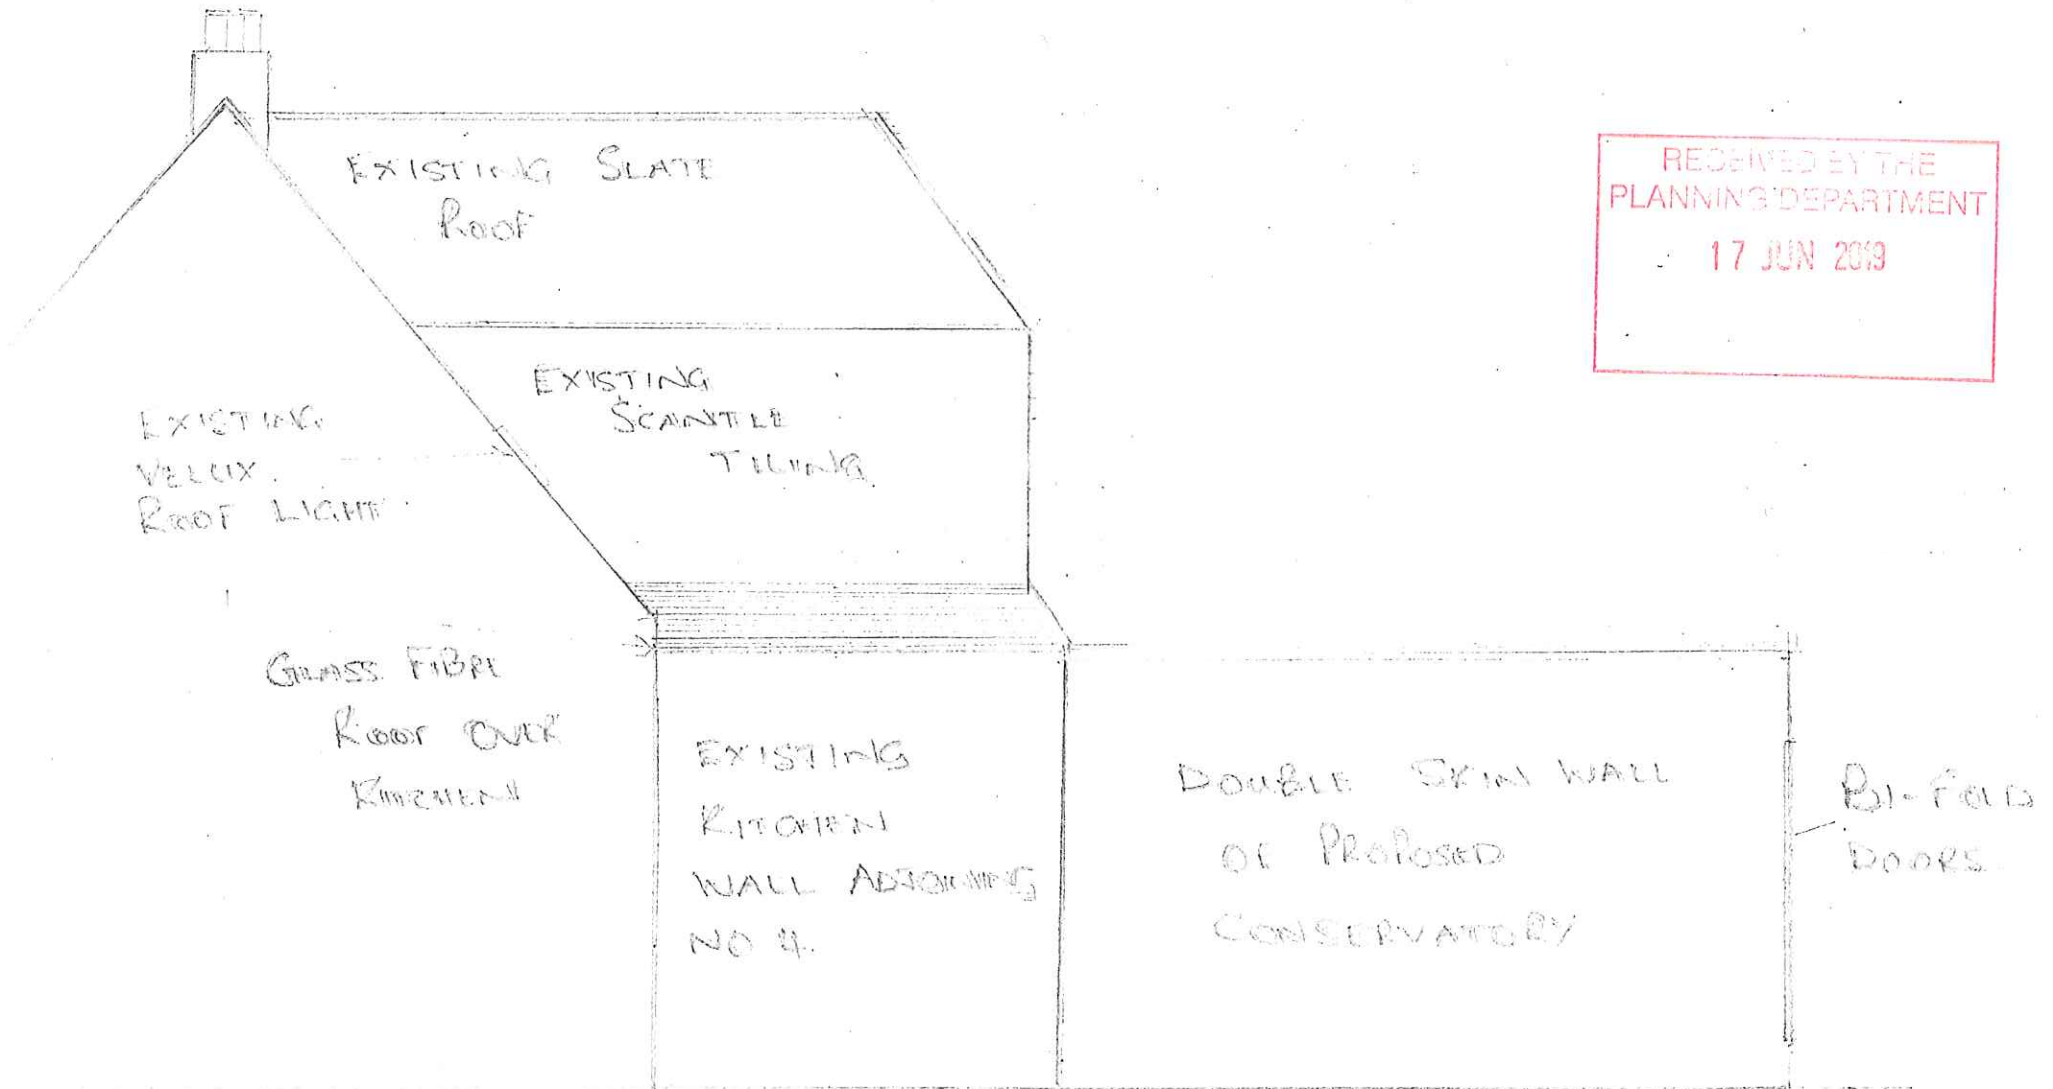 EXISTING SLATE
ROOF
RECEIVED BY THE
PLANNING DEPARTMENT
17 JUN 2019
EXISTING
SCANTLE
TILING
EXISTING
VELUX
ROOF LIGHT
GLASS FIBRE
ROOF OVER
KITCHEN
EXISTING
KITCHEN
WALL ADJOINING
NO 4.
DOUBLE SKIN WALL
OF PROPOSED
CONSERVATORY
BI-FOLD
DOORS